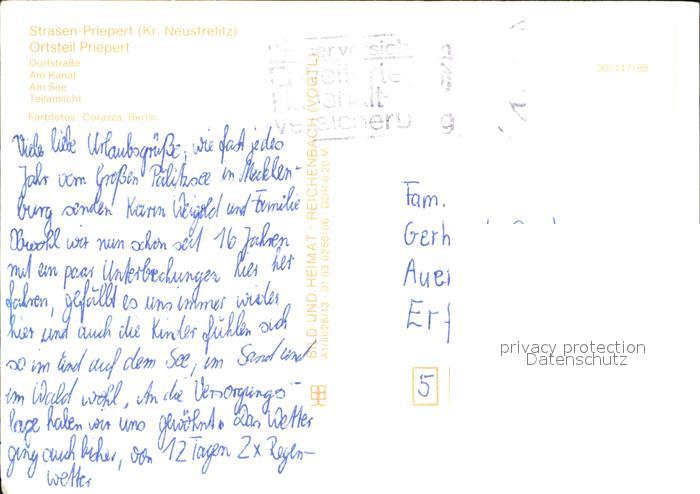 Strasen-Priepert (Kr. Neustrelitz)
Ortsteil Priepert
Dorfstraße
Am Kanal
Am See
Teilansicht
Farbfotos: Corazza, Berlin
Viele liebe Urlaubsgrüße, wie fast jedes
Jahr vom Großen Pälitzsee in Mecklen-
burg senden Karin Weigold und Familie
Obwohl wir nun schon seit 16 Jahren
mit ein paar Unterbechungen hier her
fahren, gefällt es uns immer wieder
hier und auch die Kinder fühlen sich
so im und auf dem See, im Sand und
im Wald wohl, An die Versorgungs-
lage haben wir uns gewöhnt. Das Wetter
ging auch bisher, von 12 Tagen 2x Regen-
wetter
BILD UND HEIMAT · REICHENBACH (VOGTL)
A1/III/26/13 01 03 0255/06 DDR 0,20 M
301447/88
Fam.
Gerh
Auer
Erf
5
privacy protection
Datenschutz